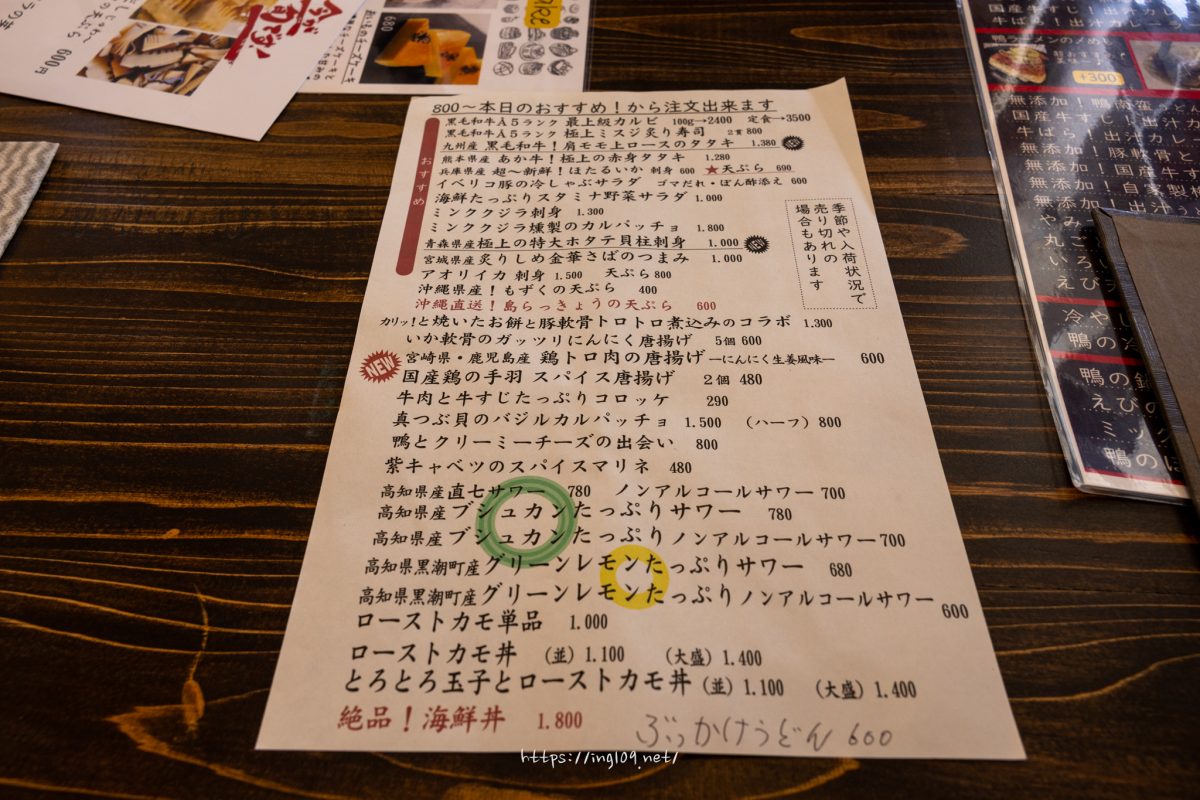 今が旬!
600円
680
800〜本日のおすすめ!から注文出来ます
おすすめ
黒毛和牛A5ランク 最上級カルビ 100g→2400 定食→3500
黒毛和牛A5ランク 極上ミスジ炙り寿司 2貫 800
九州産 黒毛和牛!肩モモ上ロースのタタキ 1.380
熊本県産 あか牛!極上の赤身タタキ 1.280
兵庫県産 超〜新鮮!ほたるいか 刺身 600 ★天ぷら 690
イベリコ豚の冷しゃぶサラダ ゴマだれ・ぽん酢添え 600
海鮮たっぷりスタミナ野菜サラダ 1.000
ミンククジラ刺身 1.300
ミンククジラ燻製のカルパッチョ 1.800
青森県産極上の特大ホタテ貝柱刺身 1.000
宮城県産炙りしめ金華さばのつまみ 1.000
アオリイカ 刺身 1.500 天ぷら 800
沖縄県産!もずくの天ぷら 400
沖縄直送!島らっきょうの天ぷら 600
季節や入荷状況で
売り切れの
場合もあります
カリッ!と焼いたお餅と豚軟骨トロトロ煮込みのコラボ 1.300
いか軟骨のガッツリにんにく唐揚げ 5個 600
NEW 宮崎県・鹿児島産 鶏トロ肉の唐揚げ ―にんにく生姜風味― 600
国産鶏の手羽 スパイス唐揚げ 2個 480
牛肉と牛すじたっぷりコロッケ 290
真つぶ貝のバジルカルパッチョ 1.500 (ハーフ) 800
鴨とクリーミーチーズの出会い 800
紫キャベツのスパイスマリネ 480
高知県産直七サワー 780 ノンアルコールサワー 700
高知県産ブシュカンたっぷりサワー 780
高知県産ブシュカンたっぷりノンアルコールサワー 700
高知県黒潮町産グリーンレモンたっぷりサワー 680
高知県黒潮町産グリーンレモンたっぷりノンアルコールサワー 600
ローストカモ単品 1.000
ローストカモ丼 (並) 1.100 (大盛) 1.400
とろとろ玉子とローストカモ丼 (並) 1.100 (大盛) 1.400
絶品!海鮮丼 1.800
ぶっかけうどん 600
https://ing109.net/
+300